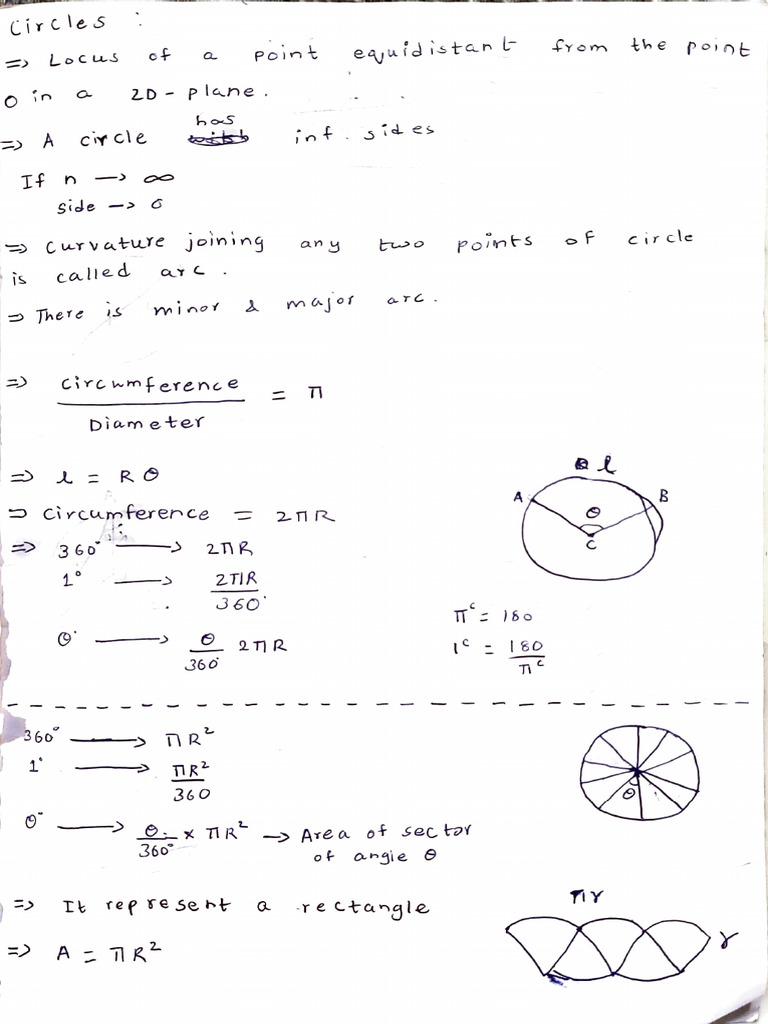 Circles :
=> Locus of a point equidistant from the point
O in a 2D-plane.
=> A circle has inf. sides
If n → ∞
side → 0
=> Curvature joining any two points of circle
is called arc.
=> There is minor & major arc.
=> Circumference / Diameter = π
=> l = Rθ
=> Circumference = 2πR
=> 360° → 2πR
1° → 2πR / 360°
θ° → θ / 360° 2πR
l
A B
θ
C
π^c = 180
1^c = 180 / π^c
360° → πR²
1° → πR² / 360
θ° → θ / 360° × πR² → Area of sector
of angle θ
θ
=> It represent a rectangle
=> A = πR²
πr
r